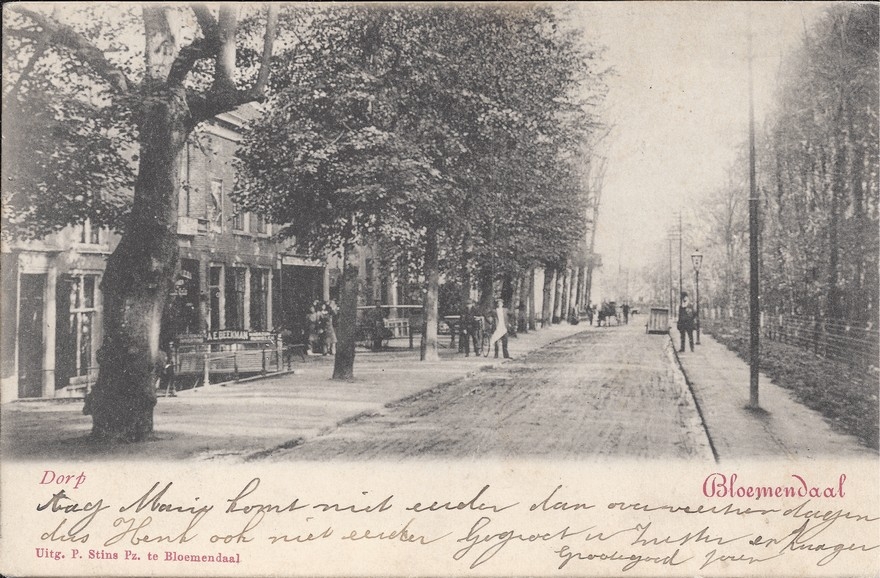 A.E. BEEKMAN
Dorp
Bloemendaal
dag Marie komt niet eerder dan over veertien dagen
dus Henk ook niet eerder Gegroet u Zuster en
Uitg. P. Stins Pz. te Bloemendaal
Grootegoed